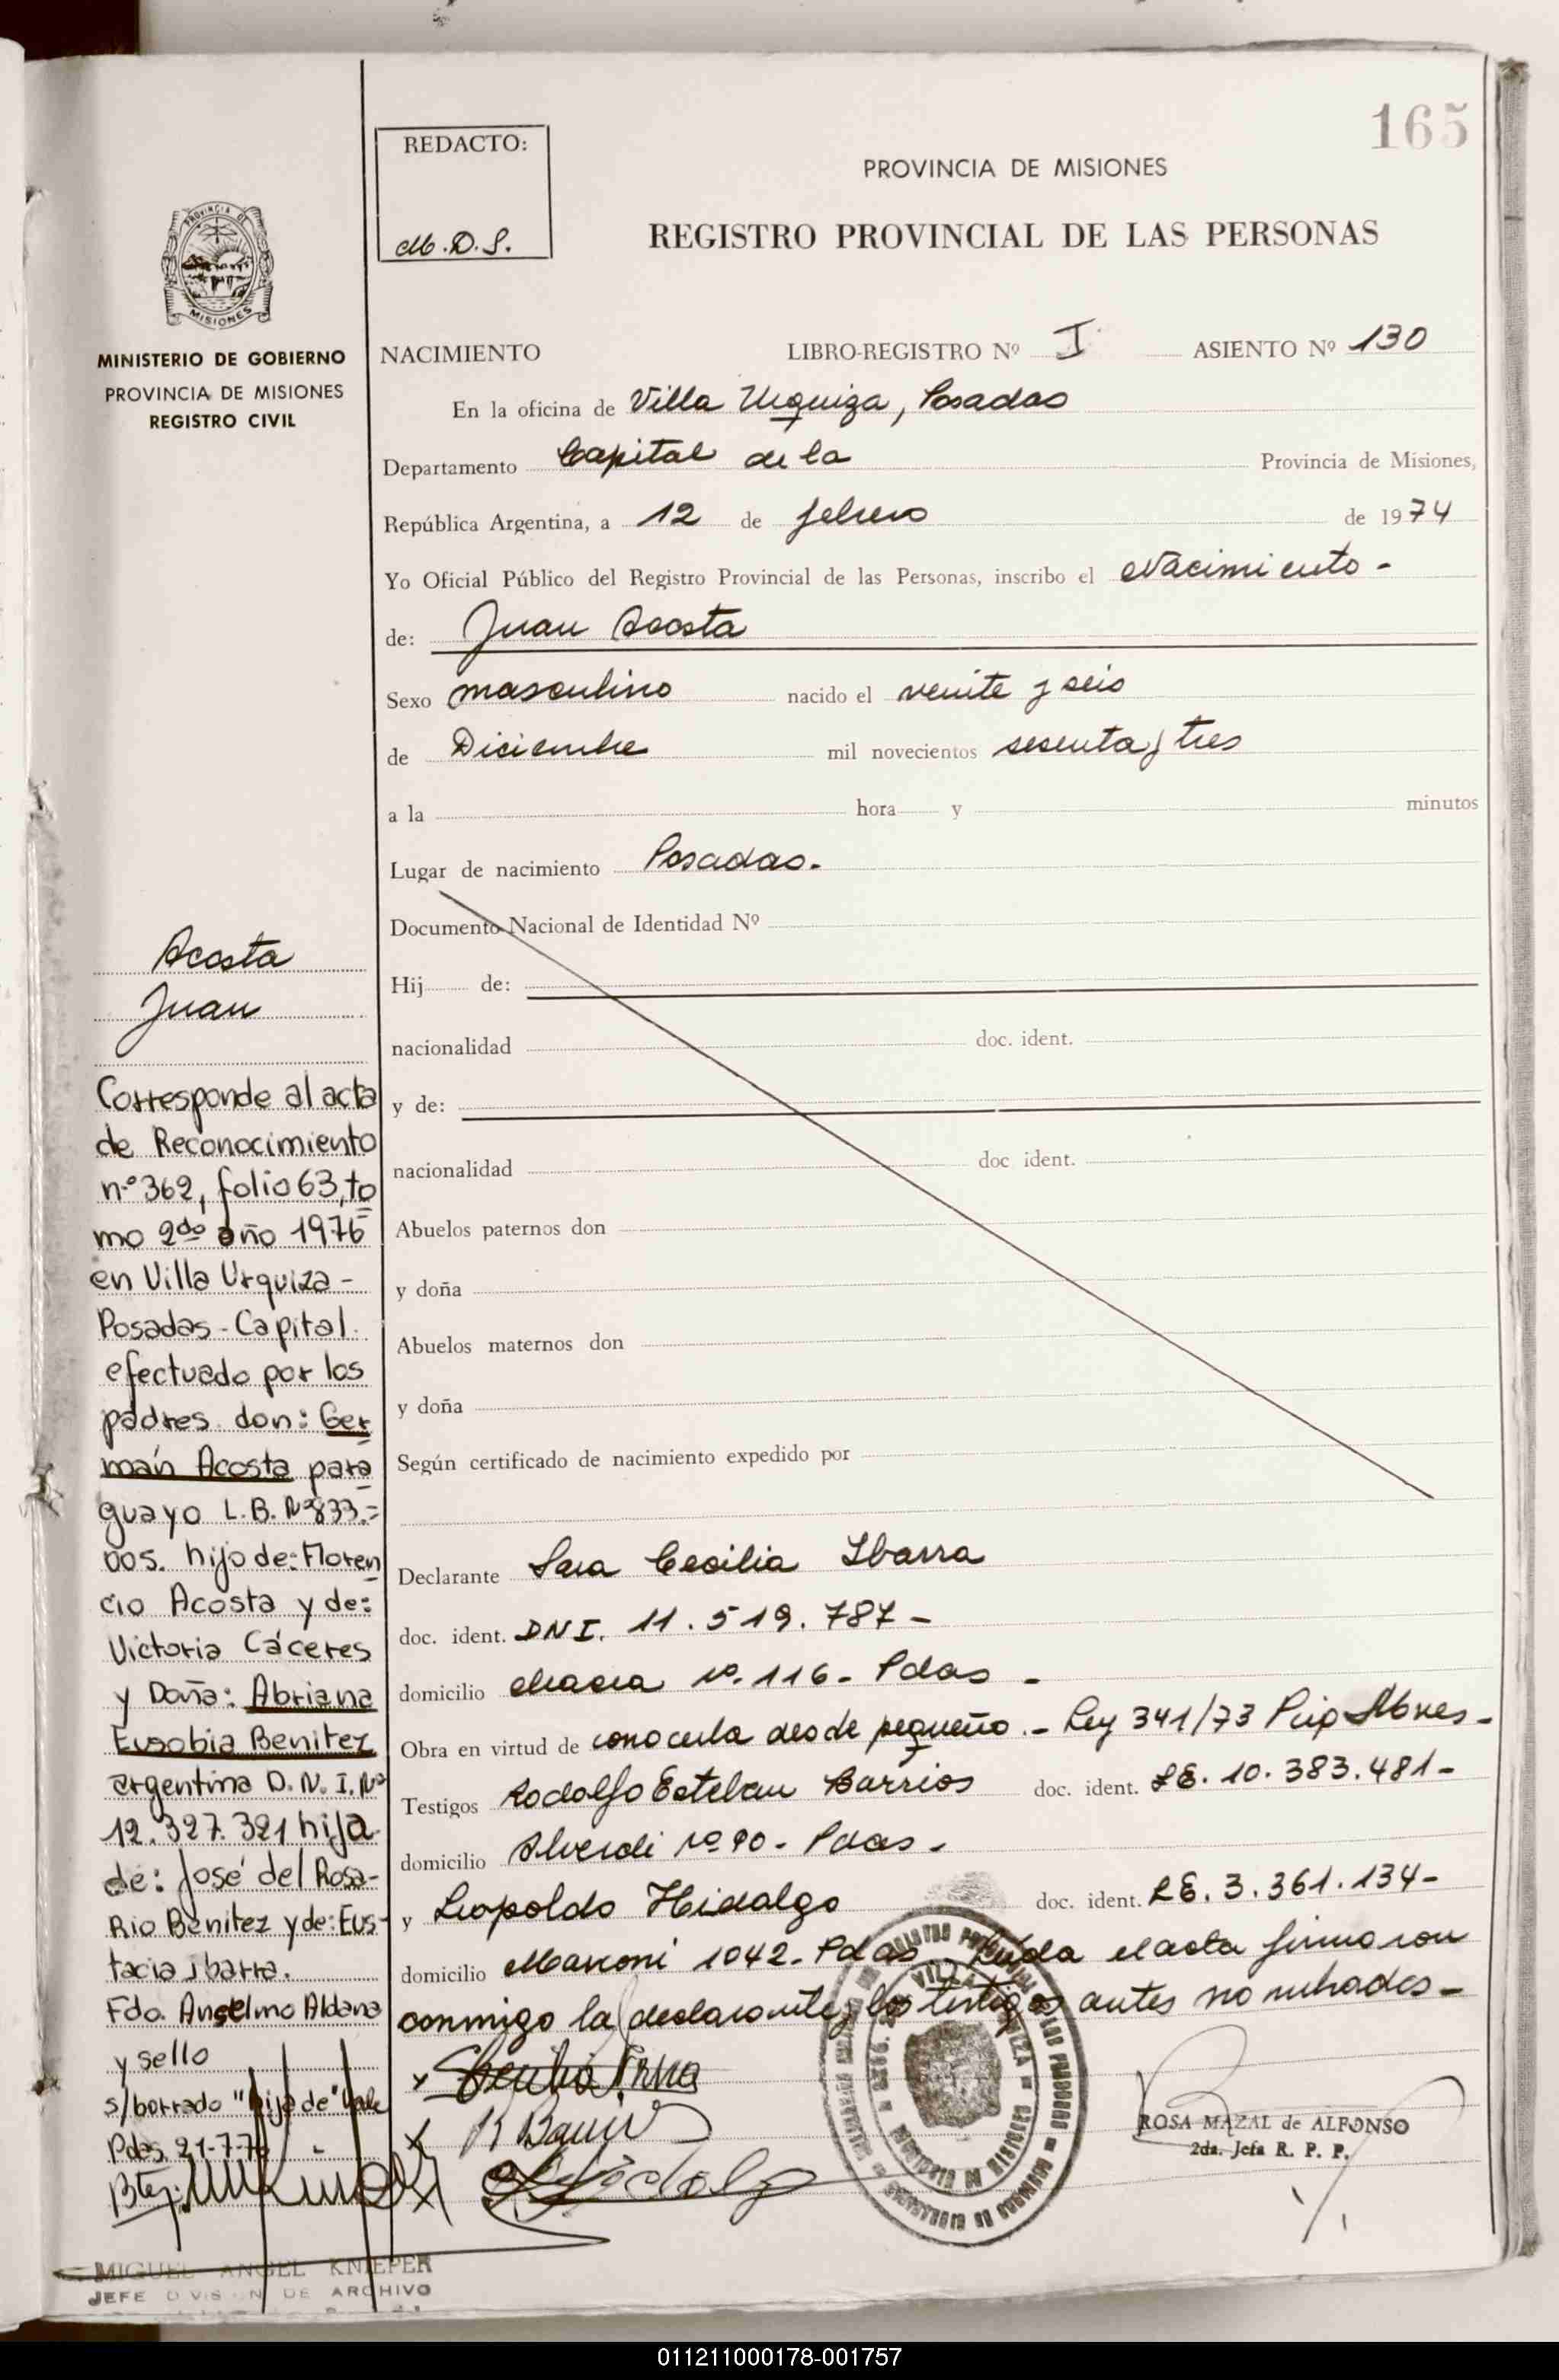 165
REDACTO:
M.D.S.
PROVINCIA DE MISIONES
REGISTRO PROVINCIAL DE LAS PERSONAS
PROVINCIA DE
MISIONES
MINISTERIO DE GOBIERNO
PROVINCIA DE MISIONES
REGISTRO CIVIL
NACIMIENTO LIBRO-REGISTRO Nº I ASIENTO Nº 130
En la oficina de Villa Urquiza, Posadas
Departamento Capital de la Provincia de Misiones,
República Argentina, a 12 de febrero de 1974
Yo Oficial Público del Registro Provincial de las Personas, inscribo el Nacimiento -
de: Juan Acosta
Sexo masculino nacido el veinte y seis
de Diciembre mil novecientos sesenta y tres
a la hora y minutos
Lugar de nacimiento Posadas.
Documento Nacional de Identidad Nº
Hij de:
nacionalidad doc. ident.
y de:
nacionalidad doc ident.
Abuelos paternos don
y doña
Abuelos maternos don
y doña
Según certificado de nacimiento expedido por
Declarante Sara Cecilia Ibarra
doc. ident. DNI. 11.519.787-
domicilio chacra nº. 116- Pdas -
Obra en virtud de conocerla desde pequeño.- Ley 341/73
Testigos Rodolfo Esteban Barrios doc. ident. LE. 10.383.481-
domicilio Alverdi nº 90- Pdas-
y Leopoldo Hidalgo doc. ident. LE. 3.361.134-
domicilio Marconi 1042- Pdas Leida el acta firmaron
conmigo la declarante y los testigos antes nombrados-
ROSA MAZAL de ALFONSO
2da. Jefa R. P. P.
Acosta
Juan
Corresponde al acta
de Reconocimiento
nº 362, folio 63, to
mo 2do año 1976
en Villa Urquiza-
Posadas-Capital.
efectuado por los
padres don: Ger
mán Acosta para
guayo L.B. Nº 833.=
005. hijo de: Floren
cio Acosta y de:
Victoria Cáceres
y Doña: Abriana
Eusobia Benitez
argentina D.N.I. Nº
12.327.321 hija
de: José del Rosa-
Rio Benitez y de: Eus-
tacia ibarra.
Fdo. Anselmo Aldana
y sello
s/borrado "hija de" Vale
Pdas 21-7-76
MIGUEL ANGEL KNIEPER
JEFE DIVISION DE ARCHIVO
011211000178-001757